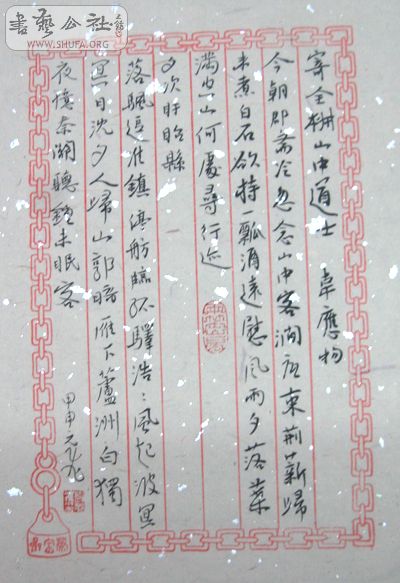 書藝公社
WWW.SHUFA.ORG
寄全椒山中道士 韋應物
今朝郡斋冷忽念山中客涧底束荆薪歸
来煮白石欲持一瓢酒遠慰风雨夕落葉
满空山何處尋行迹
夕次盱眙縣
落帆逗淮鎮停舫臨孤驛浩〻風起波冥
冥日沈夕人歸山郭暗雁下蘆洲白獨
夜憶秦關聽鐘未眠客
甲申